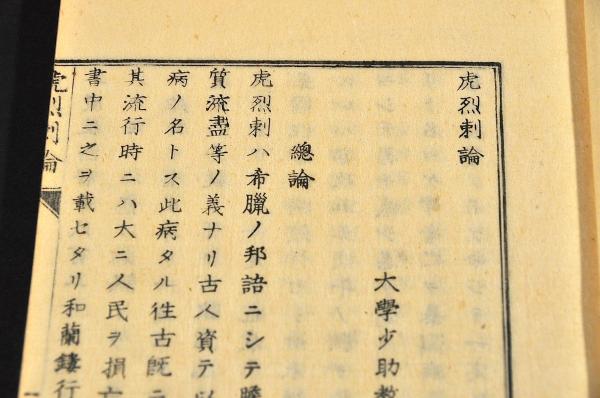 虎烈剌論
大學少助教
總論
虎烈剌ハ希臘ノ邦語ニシテ
質流盡等ノ義ナリ古人資テ以
病ノ名トス此病タル徃古旣ニ
其流行時ニハ大ニ人民ヲ損
書中ニ之ヲ載セタリ和蘭鏤行
虎烈剌論